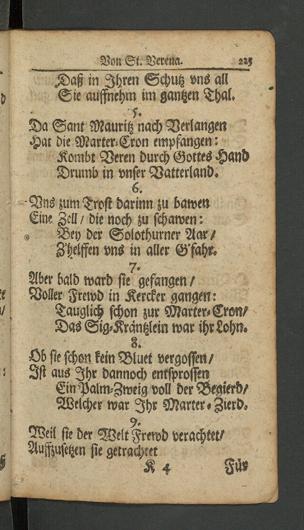 Von St. Verena. 225
Daß in Ihren Schutz vns all
Sie auffnehm im gantzen Thal.
5.
Da Sant Mauritz nach Verlangen
Hat die Marter-Cron empfangen:
Kombt Veren durch Gottes Hand
Drumb in vnser Vatterland.
6.
Vns zum Trost darinn zu bawen
Eine Zell / die noch zu schawen:
Bey der Solothurner Aar /
Z'helffen vns in aller G'fahr.
7.
Aber bald ward sie gefangen /
Voller Frewd in Kercker gangen:
Tauglich schon zur Marter-Cron /
Das Sig-Kräntzlein war ihr Lohn.
8.
Ob sie schon kein Bluet vergossen /
Ist aus Ihr dannoch entsprossen
Ein Palm-Zweig voll der Begierd /
Welcher war Ihr Marter-Zierd.
9.
Weil sie der Welt Frewd verachtet /
Auffzusetzen sie getrachtet
K 4 Für